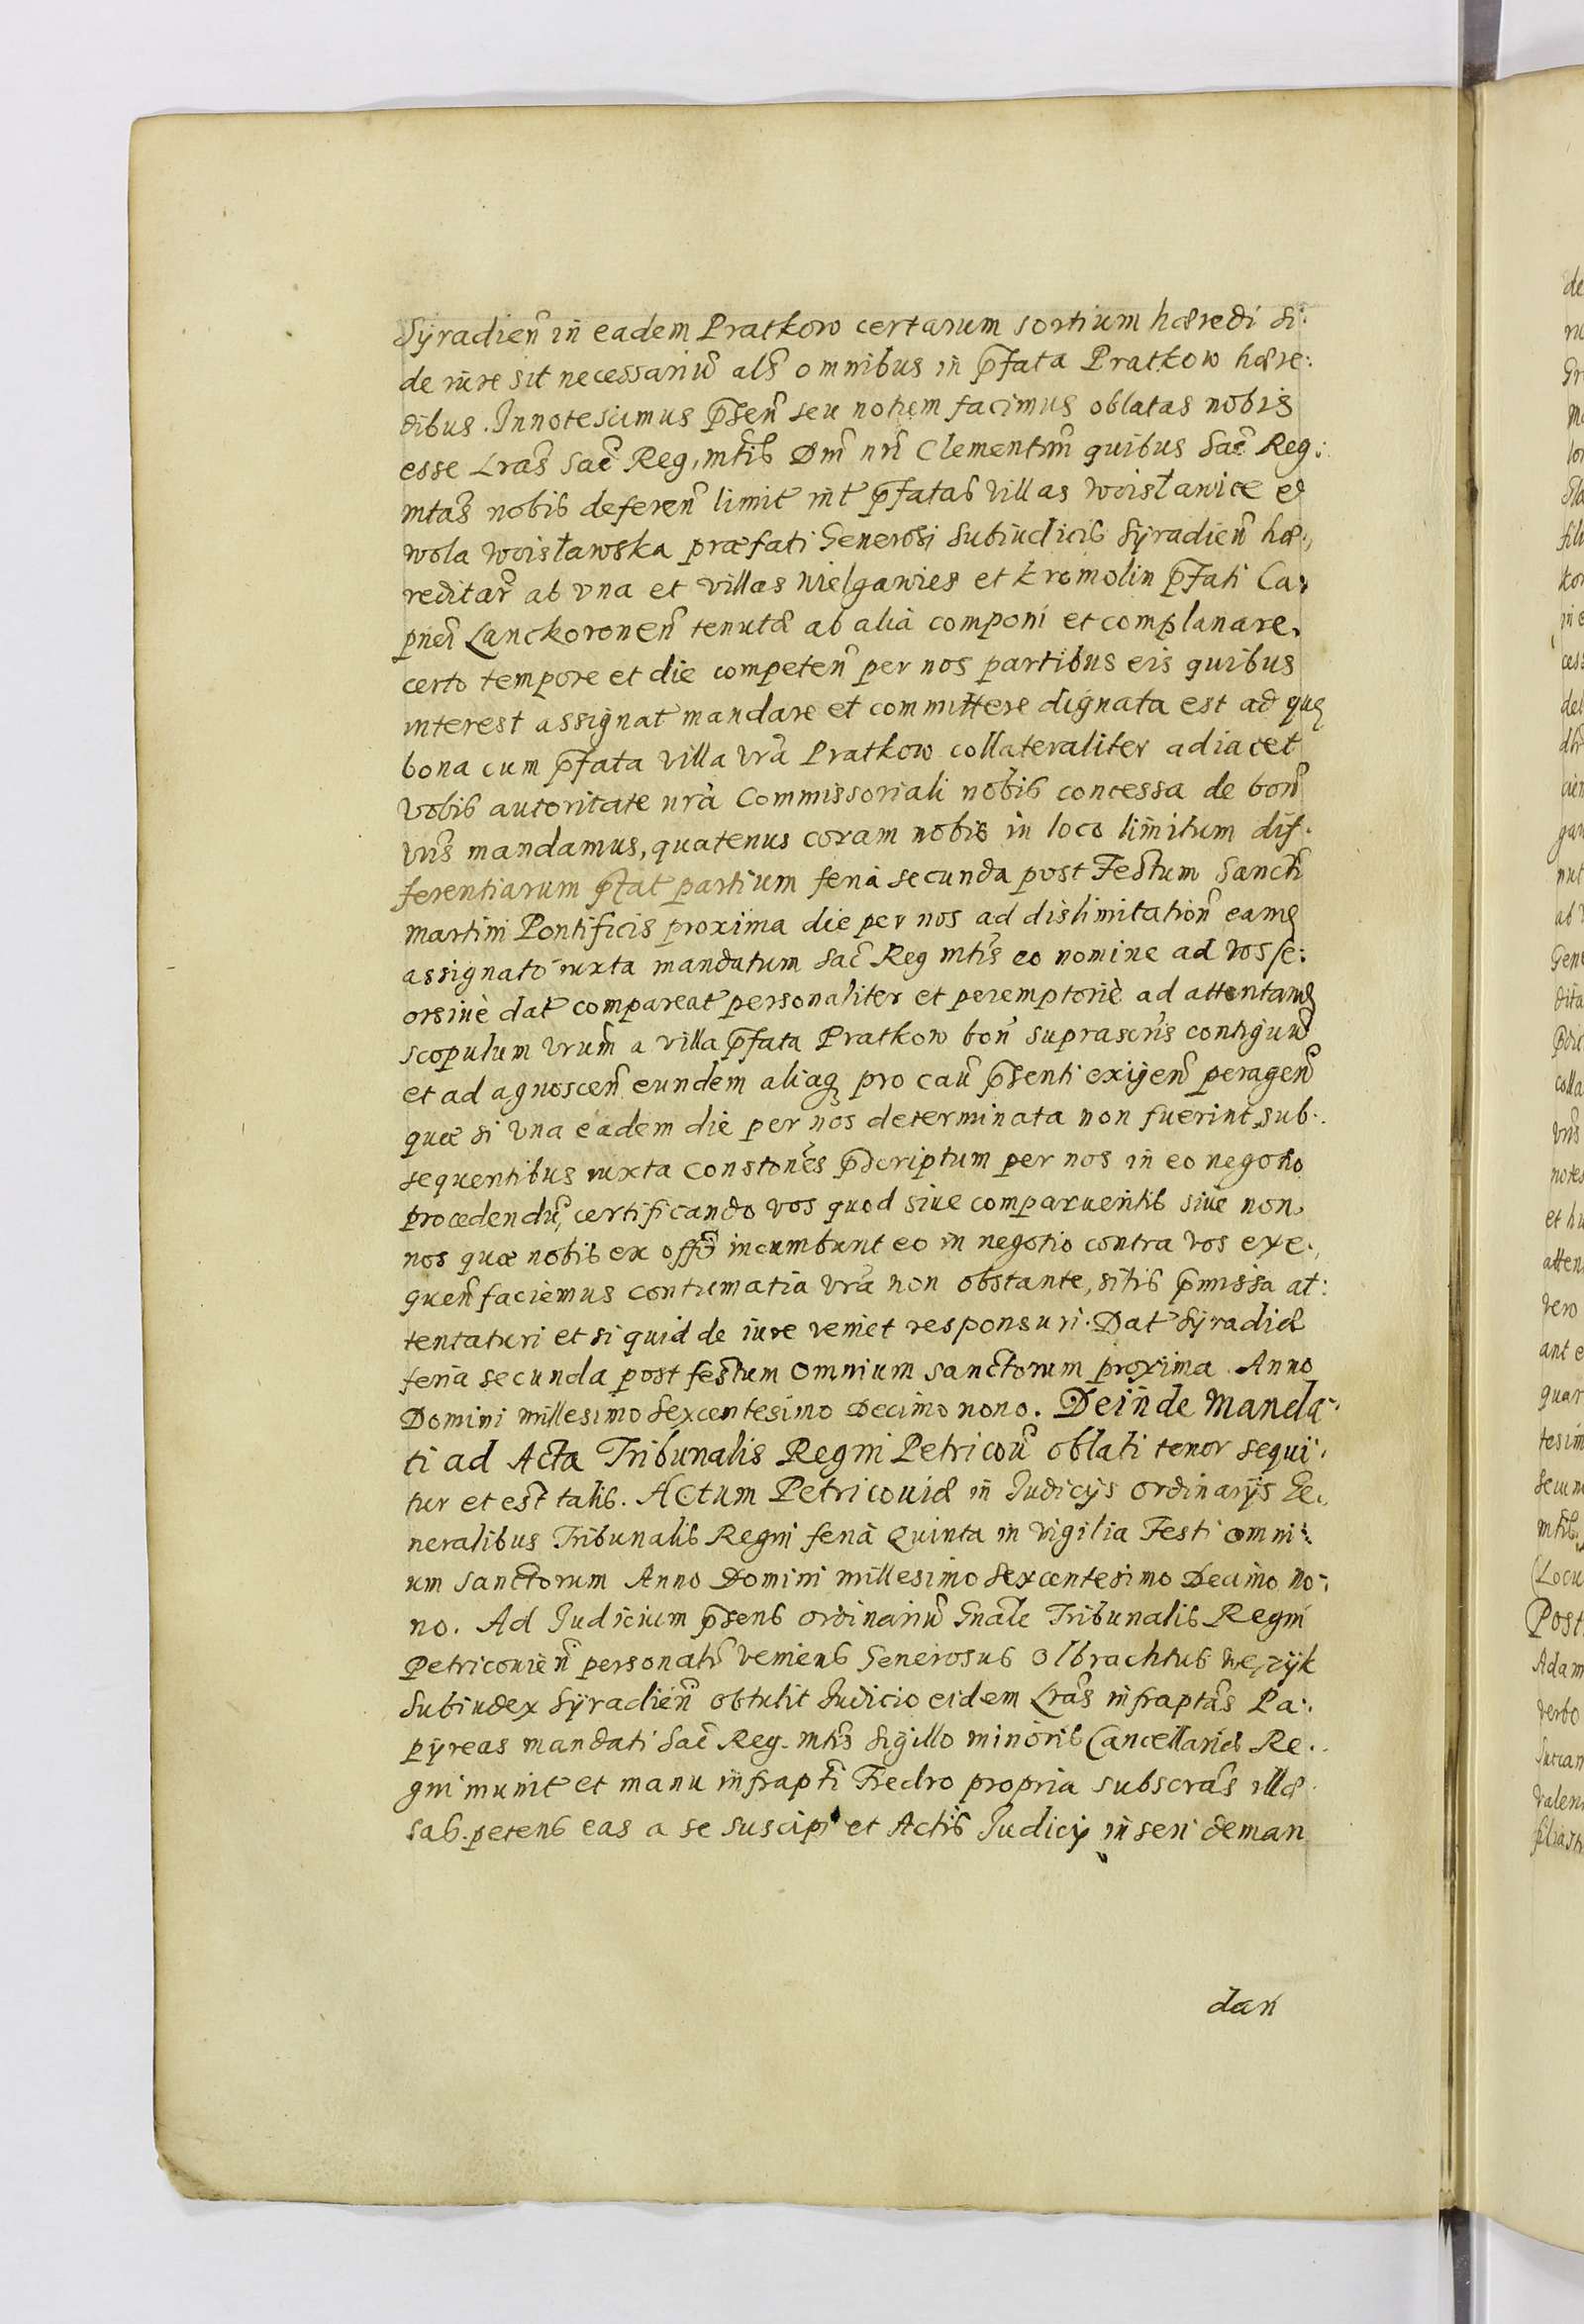 Syradien̄ in eadem Pratkow certarum sortium hæredi si:
de iure sit necessariū als̄ omnibus in p̄fata Pratkow hære:
dibus. Innotescimus p̄sen̄ seu notum facimus oblatas nobis
esse Lrās Sac̄ Reg. mtīs Dnī nrī Clementm̄ quibus Sac̄ Reg:
mtās nobis deferen̄ limit̄ int̄ p̄fatas villas Woisławice et
wola Woisławska præfati Generosi Subiudicis Syradien̄ hæ:
reditar̄ ab vna et villas Wielgawies et kromolin p̄fati Ca:
pnei Lanckoronen̄ tenutæ ab alia componi et complanare,
certo tempore et die competen̄ per nos partibus eis quibus
interest assignat̄ mandare et committere dignata est ad quę
bona cum p̄fata villa vrā Pratkow collateraliter adiacet
vobis autoritate nrā Commissoriali nobis concessa de bon̄
vrīs mandamus, quatenus coram nobis in loco limitum dif:
ferentiarum p̄tat partium feria secunda post Festum Sancti
Martini Pontificis proxima die per nos ad dislimitation̄ eamę
assignato iuxta mandatum Sac̄ Reg mtīs eo nomine ad vos se:
orsiue dat̄ compareat̄ personaliter et peremptorie ad attentanę
scopulum vrum̄ a villa p̄fata Pratkow bon̄ suprascrīs contiguū
et ad agnoscen̄ eundem aliaq pro cau̅ p̄senti exijen̄ peragen̄
quæ si vna eadem die per nos determinata non fuerint, sub:
sequentibus iuxta constones̄ p̄scriptum per nos in eo negotio
procedendū, certificando vos quod siue comparueritis siue non,
nos quæ nobis ex offō incumbunt eo in negotio contra vos exe:
quen̄ faciemus contumatia vrā non obstante, sitis p̄missa at:
tentaturi et si quid de iure veniet responsuri. Dat̄ Syradiæ
feria secunda post festum Omnium Sanctorum proxima Anno
Domini millesimo sexcentesimo Decimo nono. Deinde Manda:
ti ad Acta Tribunalis Regni Petricou̅ oblati tenor sequi:
tur et est talis. Actum Petricouiæ in Judicijs ordinarijs Ge:
neralibus Tribunalis Regni feria Quinta in vigilia Festi omni:
um Sanctorum Anno Domini millesimo sexcentesimo Decimo no:
no. Ad Judicium p̄sens ordinariū Gnale Tribunalis Regni
Petricouien̄ personatr̄ veniens Generosus Olbrachtus Wężyk
Subiudex Syradien̄ obtulit Judicio eidem Lrās infraptās Pa:
pyreas mandati Sac̄ Reg. mtīs sigillo minoris Cancellariæ Re:
gni munit̄ et manu infraptī Fredro propria subscrās illæ
sas. petens eas a se suscipi et Actis Judicij inseri deman
dan